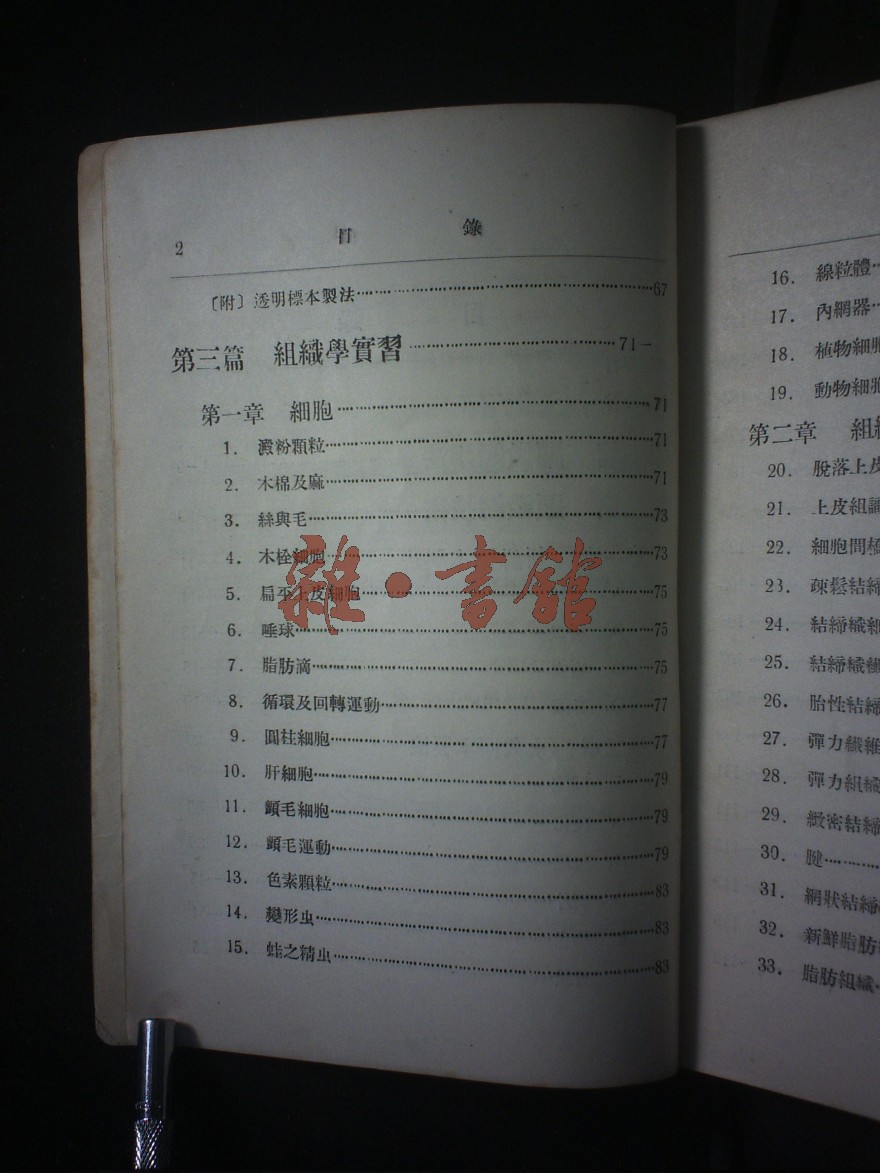 2 目錄
〔附〕透明標本製法 67
第三篇 組織學實習 71—
第一章 細胞 71
1. 澱粉顆粒 71
2. 木棉及麻 71
3. 絲與毛 73
4. 木栓細胞 73
5. 扁平上皮細胞 75
6. 唾球 75
7. 脂肪滴 75
8. 循環及回轉運動 77
9. 圓柱細胞 77
10. 肝細胞 79
11. 顫毛細胞 79
12. 顫毛運動 79
13. 色素顆粒 83
14. 變形虫 83
15. 蛙之精虫 83
雜·書館
16. 線粒體
17. 內網器
18. 植物細胞
19. 動物細胞
第二章 組
20. 脫落上皮
21. 上皮組
22. 細胞間橋
23. 疎鬆結締
24. 結締織細
25. 結締織
26. 胎性結締
27. 彈力纖維
28. 彈力組織
29. 緻密結締
30. 腱
31. 網狀結締
32. 新鮮脂肪
33. 脂肪組織